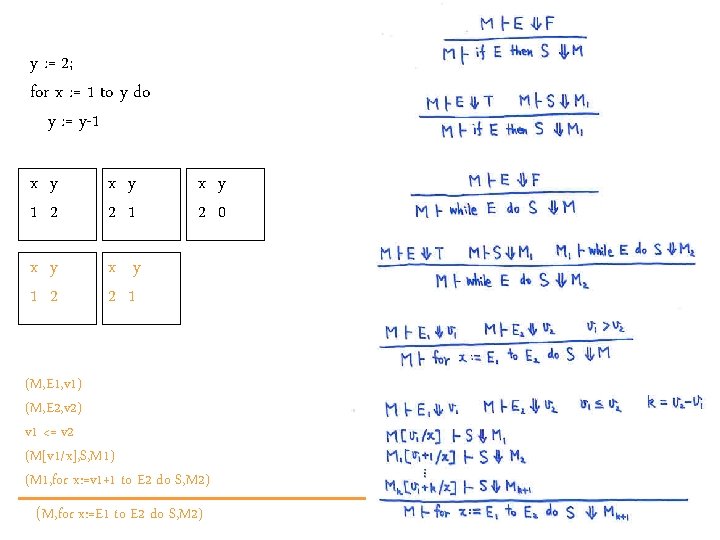 y := 2;
for x := 1 to y do
y := y-1
x y
1 2
x y
2 1
x y
2 0
x y
1 2
x y
2 1
(M,E1,v1)
(M,E2,v2)
v1 <= v2
(M[v1/x],S,M1)
(M1,for x:=v1+1 to E2 do S,M2)
(M,for x:=E1 to E2 do S,M2)
M ⊢ E ⇓ F
M ⊢ if E then S ⇓ M
M ⊢ E ⇓ T M ⊢ S ⇓ M₁
M ⊢ if E then S ⇓ M₁
M ⊢ E ⇓ F
M ⊢ while E do S ⇓ M
M ⊢ E ⇓ T M ⊢ S ⇓ M₁ M₁ ⊢ while E do S ⇓ M₂
M ⊢ while E do S ⇓ M₂
M ⊢ E₁ ⇓ v₁ M ⊢ E₂ ⇓ v₂ v₁ > v₂
M ⊢ for x := E₁ to E₂ do S ⇓ M
M ⊢ E₁ ⇓ v₁ M ⊢ E₂ ⇓ v₂ v₁ ≤ v₂ k = v₂-v₁
M[v₁/x] ⊢ S ⇓ M₁
M₁[v₁+1/x] ⊢ S ⇓ M₂
⋮
Mₖ[v₁+k/x] ⊢ S ⇓ Mₖ₊₁
M ⊢ for x := E₁ to E₂ do S ⇓ Mₖ₊₁